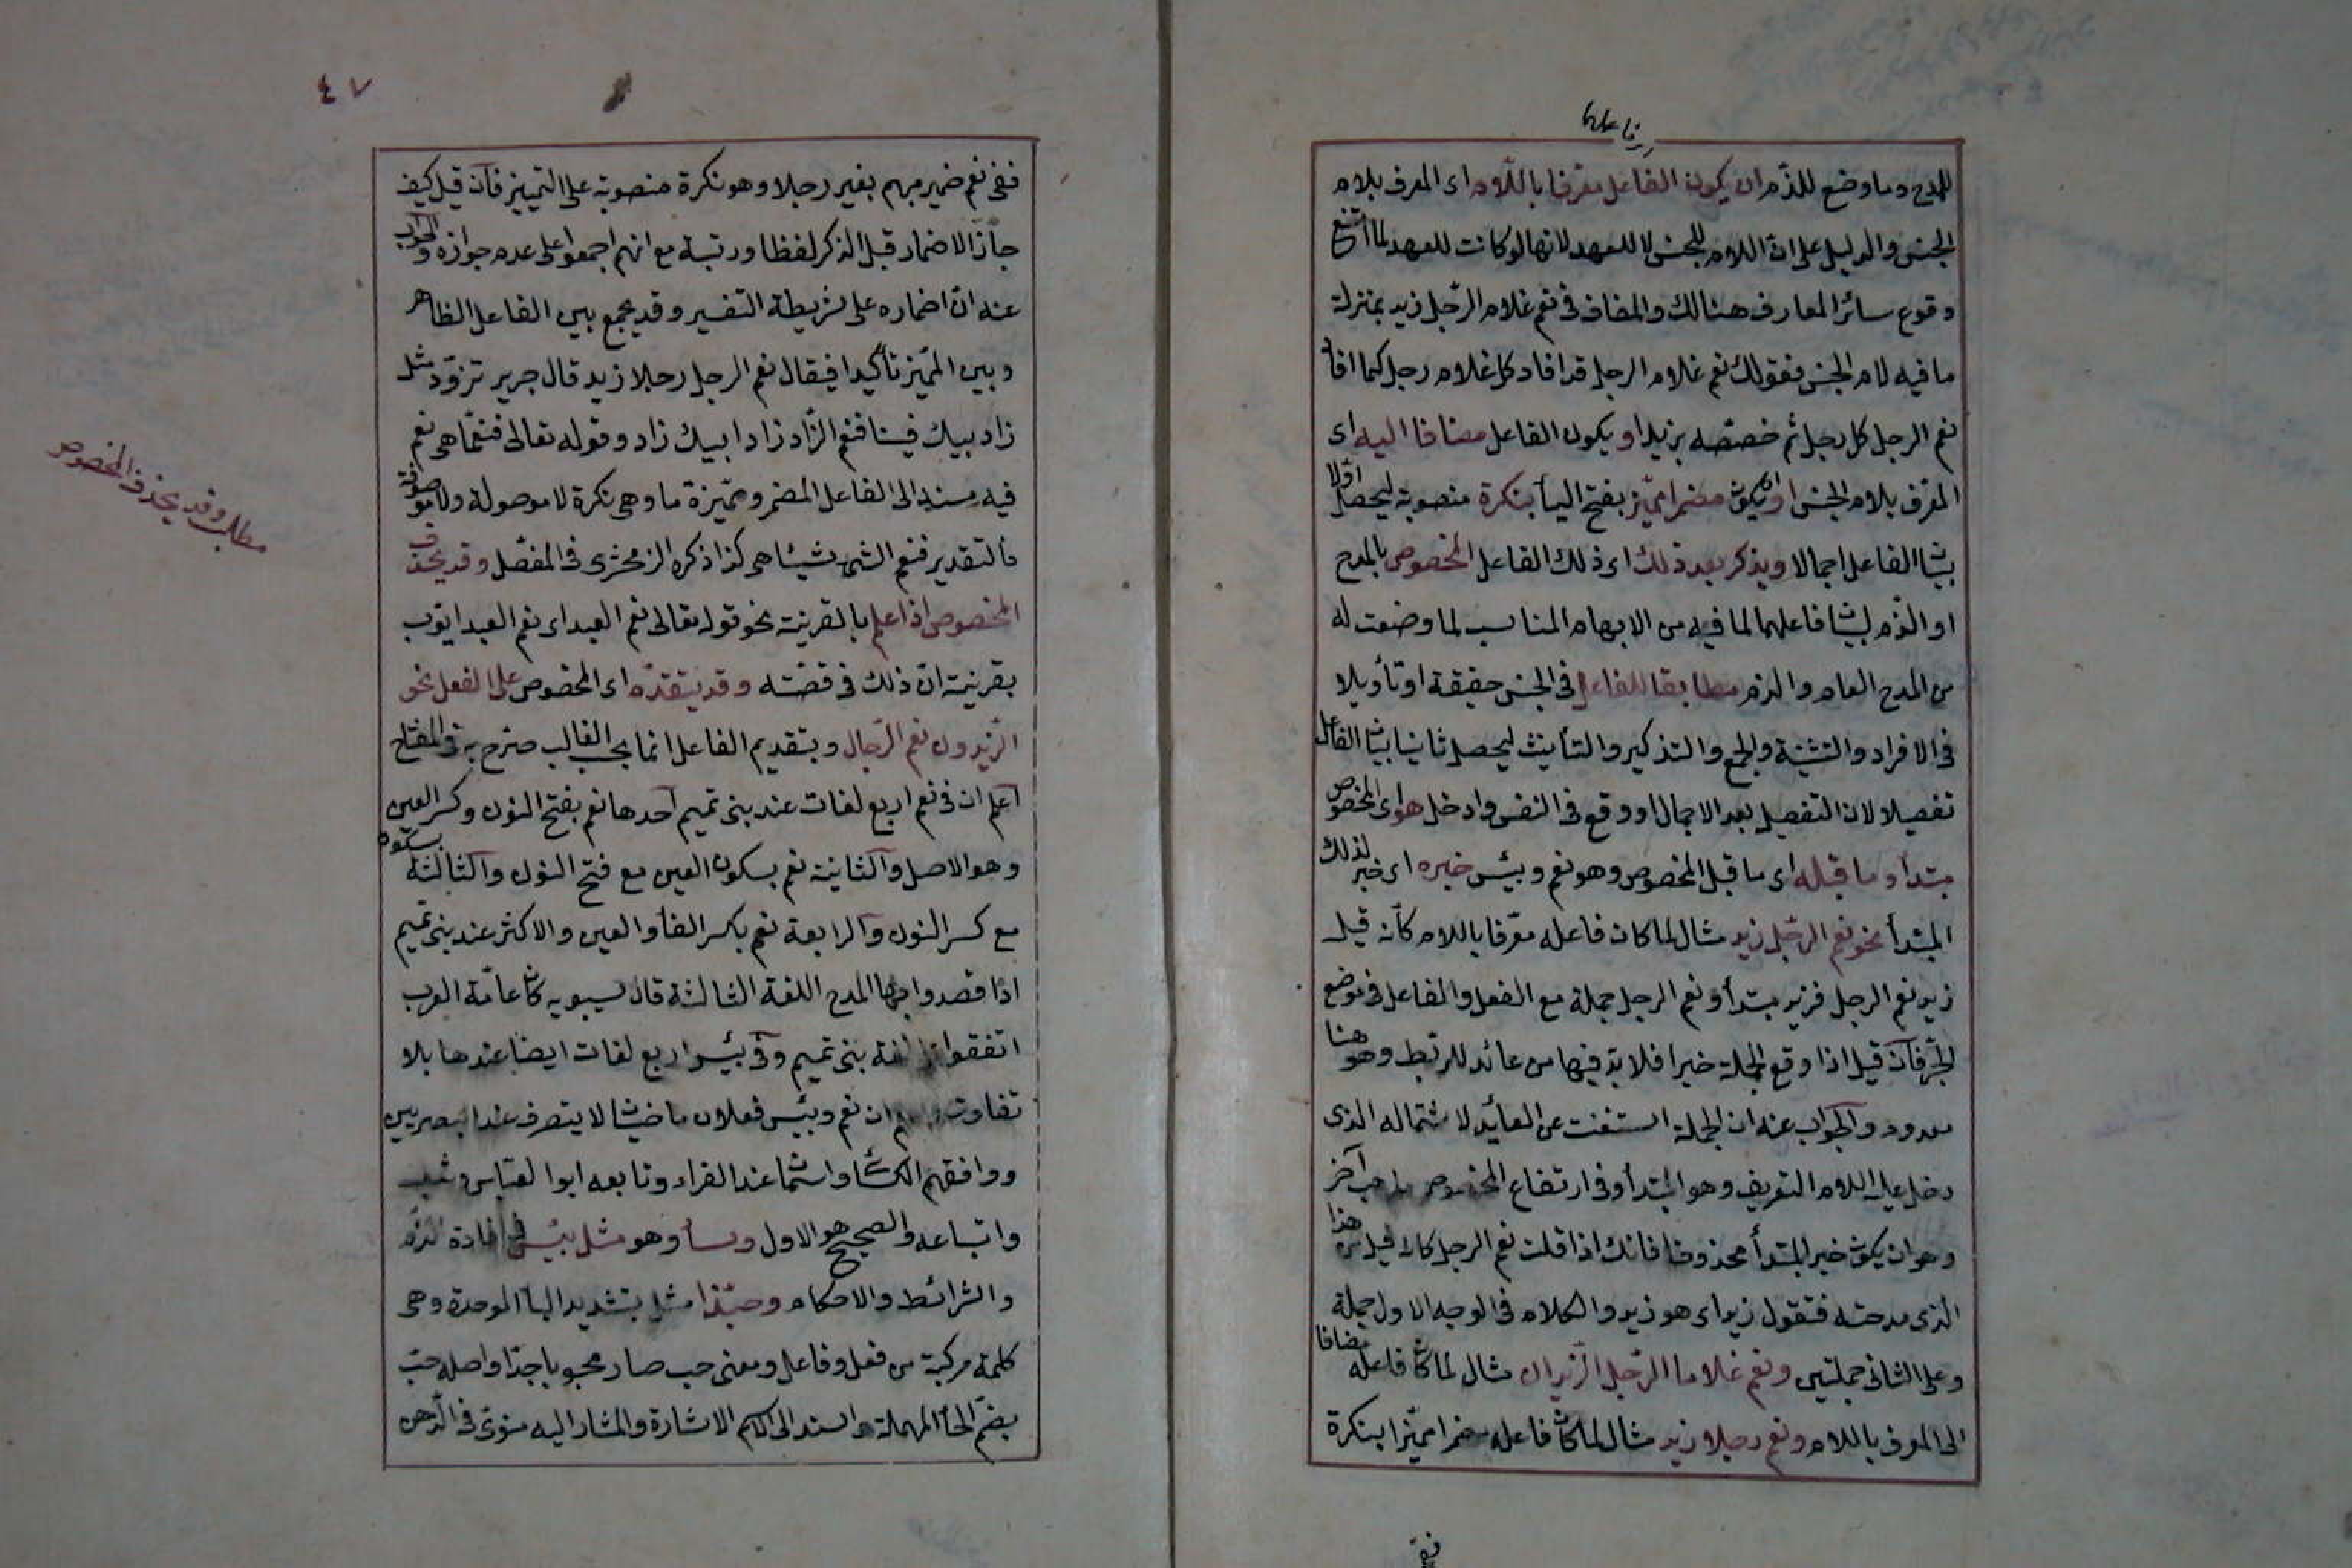 فاعلها
للمدح وما وضع للذّم ان يكون الفاعل معّرفا باللّام اى المعرف بلام
الجنس والدليل على انّ اللام للجنس لا للعهد لانها لو كانت للعهد لما امتنع
وقوع سائر المعارف هنالك والمضاف فى نعم غلام الرّجل زيد بمنزلة
ما فيه لام الجنس فقولك نعم غلام الرجل قد افاد كل غلام رجل كما افاد
نعم الرجل كل رجل ثم خصّصه بزيد او يكون الفاعل مضافا اليه اى
المعّرف بلام الجنس او يكون مضمرا مميّز بفتح اليأ بنكرة منصوبة ليحصل اوّلا
بيان الفاعل اجمالا ويذكر بعد ذلك اى ذلك الفاعل المخصوص بالمدح
او الذّم لبيان فاعلهما لما فيه من الابهام المناسب لما وضعت له
من المدح العام والذم مطابقا للفاعل فى الجنس حقيقة او تأويلا
فى الافراد والتثنية والجمع والتذكير والتأنيث ليحصل ثانيا بيان الفاعل
تفصيلا لان التفصيل بعد الاجمال اوقع فى النفس وادخل هو اى المخصوص
مبتدأ وما قبله اى ما قبل المخصوص وهو نعم وبئس خبره اى خبر لذلك
المبتدأ نحو نعم الرّجل زيد مثال لما كان فاعله معّرفا باللام كأنه قيل
زيد نعم الرجل فزيد مبتدأ ونعم الرجل جملة مع الفعل والفاعل فى موضع
الخبر فان قيل اذا وقع الجملة خبرا فلا بدّ فيها من عائد للربّط وهو هنا
معدوم والجواب عنه ان الجملة استغنت عن العائد لاشتماله الذى
دخل عليه اللام التعريف وهو المبتدأ وفى ارتفاع المخصوص مذهب آخر
وهو ان يكون خبر المبتدأ محذوفا فانك اذا قلت نعم الرجل كان قيل من هذا
الذى مدحته فتقول زيد اى هو زيد والكلام فى الوجه الاول جملة
وعلى الثانى جملتين ونعم غلاما الرّجل الزّيدان مثال لما كان فاعله مضافا
الى المعرف باللام ونعم رجلا زيد مثال لما كان فاعله مضمرا مميّزا بنكرة
٤٧
ففى نعم ضمير مبهم بغير رجلا وهو نكرة منصوبة على التمييز فان قيل كيف
جاز الاضمار قبل الذكر لفظا ورتبة مع انهم اجمعوا على عدم جوازه والجواب
عنه انّ اضماره على شريطة التفسير وقد يجمع بين الفاعل الظاهر
وبين المميّز تأكيدا فيقال نعم الرجل رجلا زيد قال جرير تزوّد مثل
زاد بيك فينا فنعم الزّاد زادا ابيك زاد وقوله تعالى فنعّما هى نعم
فيه مسند الى الفاعل المضمر ومميّزة ما وهى نكرة لا موصولة ولا موصوفة
فالتقدير فنعم الشئ شيئا هى كذا ذكره الزمخشرى فى المفصّل وقد يحذف
المخصوص اذا علم بالقرينة نحو قوله تعالى نعم العبد اى نعم العبد ايّوب
بقرينة انّ ذلك فى قصّته وقد يتقدّم اى المخصوص على الفعل نحو
الزّيدون نعم الرّجال وبتقديم الفاعل انما بحسب الغالب صّرح به فى المفتاح
اعلم ان فى نعم اربع لغات عند بنى تميم احدها نعم بفتح النون وكسر العين
وهو الاصل والثانية نعم بسكون العين مع فتح النون والثالثة بسكونه
مع كسر النون والرابعة نعم بكسر الفأ والعين والاكثر عند بنى تميم
اذا قصدوا بها المدح اللغة الثالثة قال سيبويه كان عامّة العرب
اتفقوا لغة بنى تميم وفى بئس اربع لغات ايضا عندها بلا
تفاوت ان نعم وبئس فعلان ماضيان لا يتصرف عند البصريين
ووافقهم الكسائى واسمان عند الفراء وتابعه ابو العبّاس
واتباعه والصحيح هو الاول وسأ وهو مثل بئس فى افادة الذّم
والشرائط والاحكام وحبّذا مثل بتشديد البأ الموحدة وهى
كلمة مركبة من فعل وفاعل ومعنى حب صار محبوبا جدّا واصله حبب
بضّم الحأ المهملة واسند الى اسم الاشارة والمشار اليه منوىّ فى الذّهن
مطلب وقد يحذف المخصوص